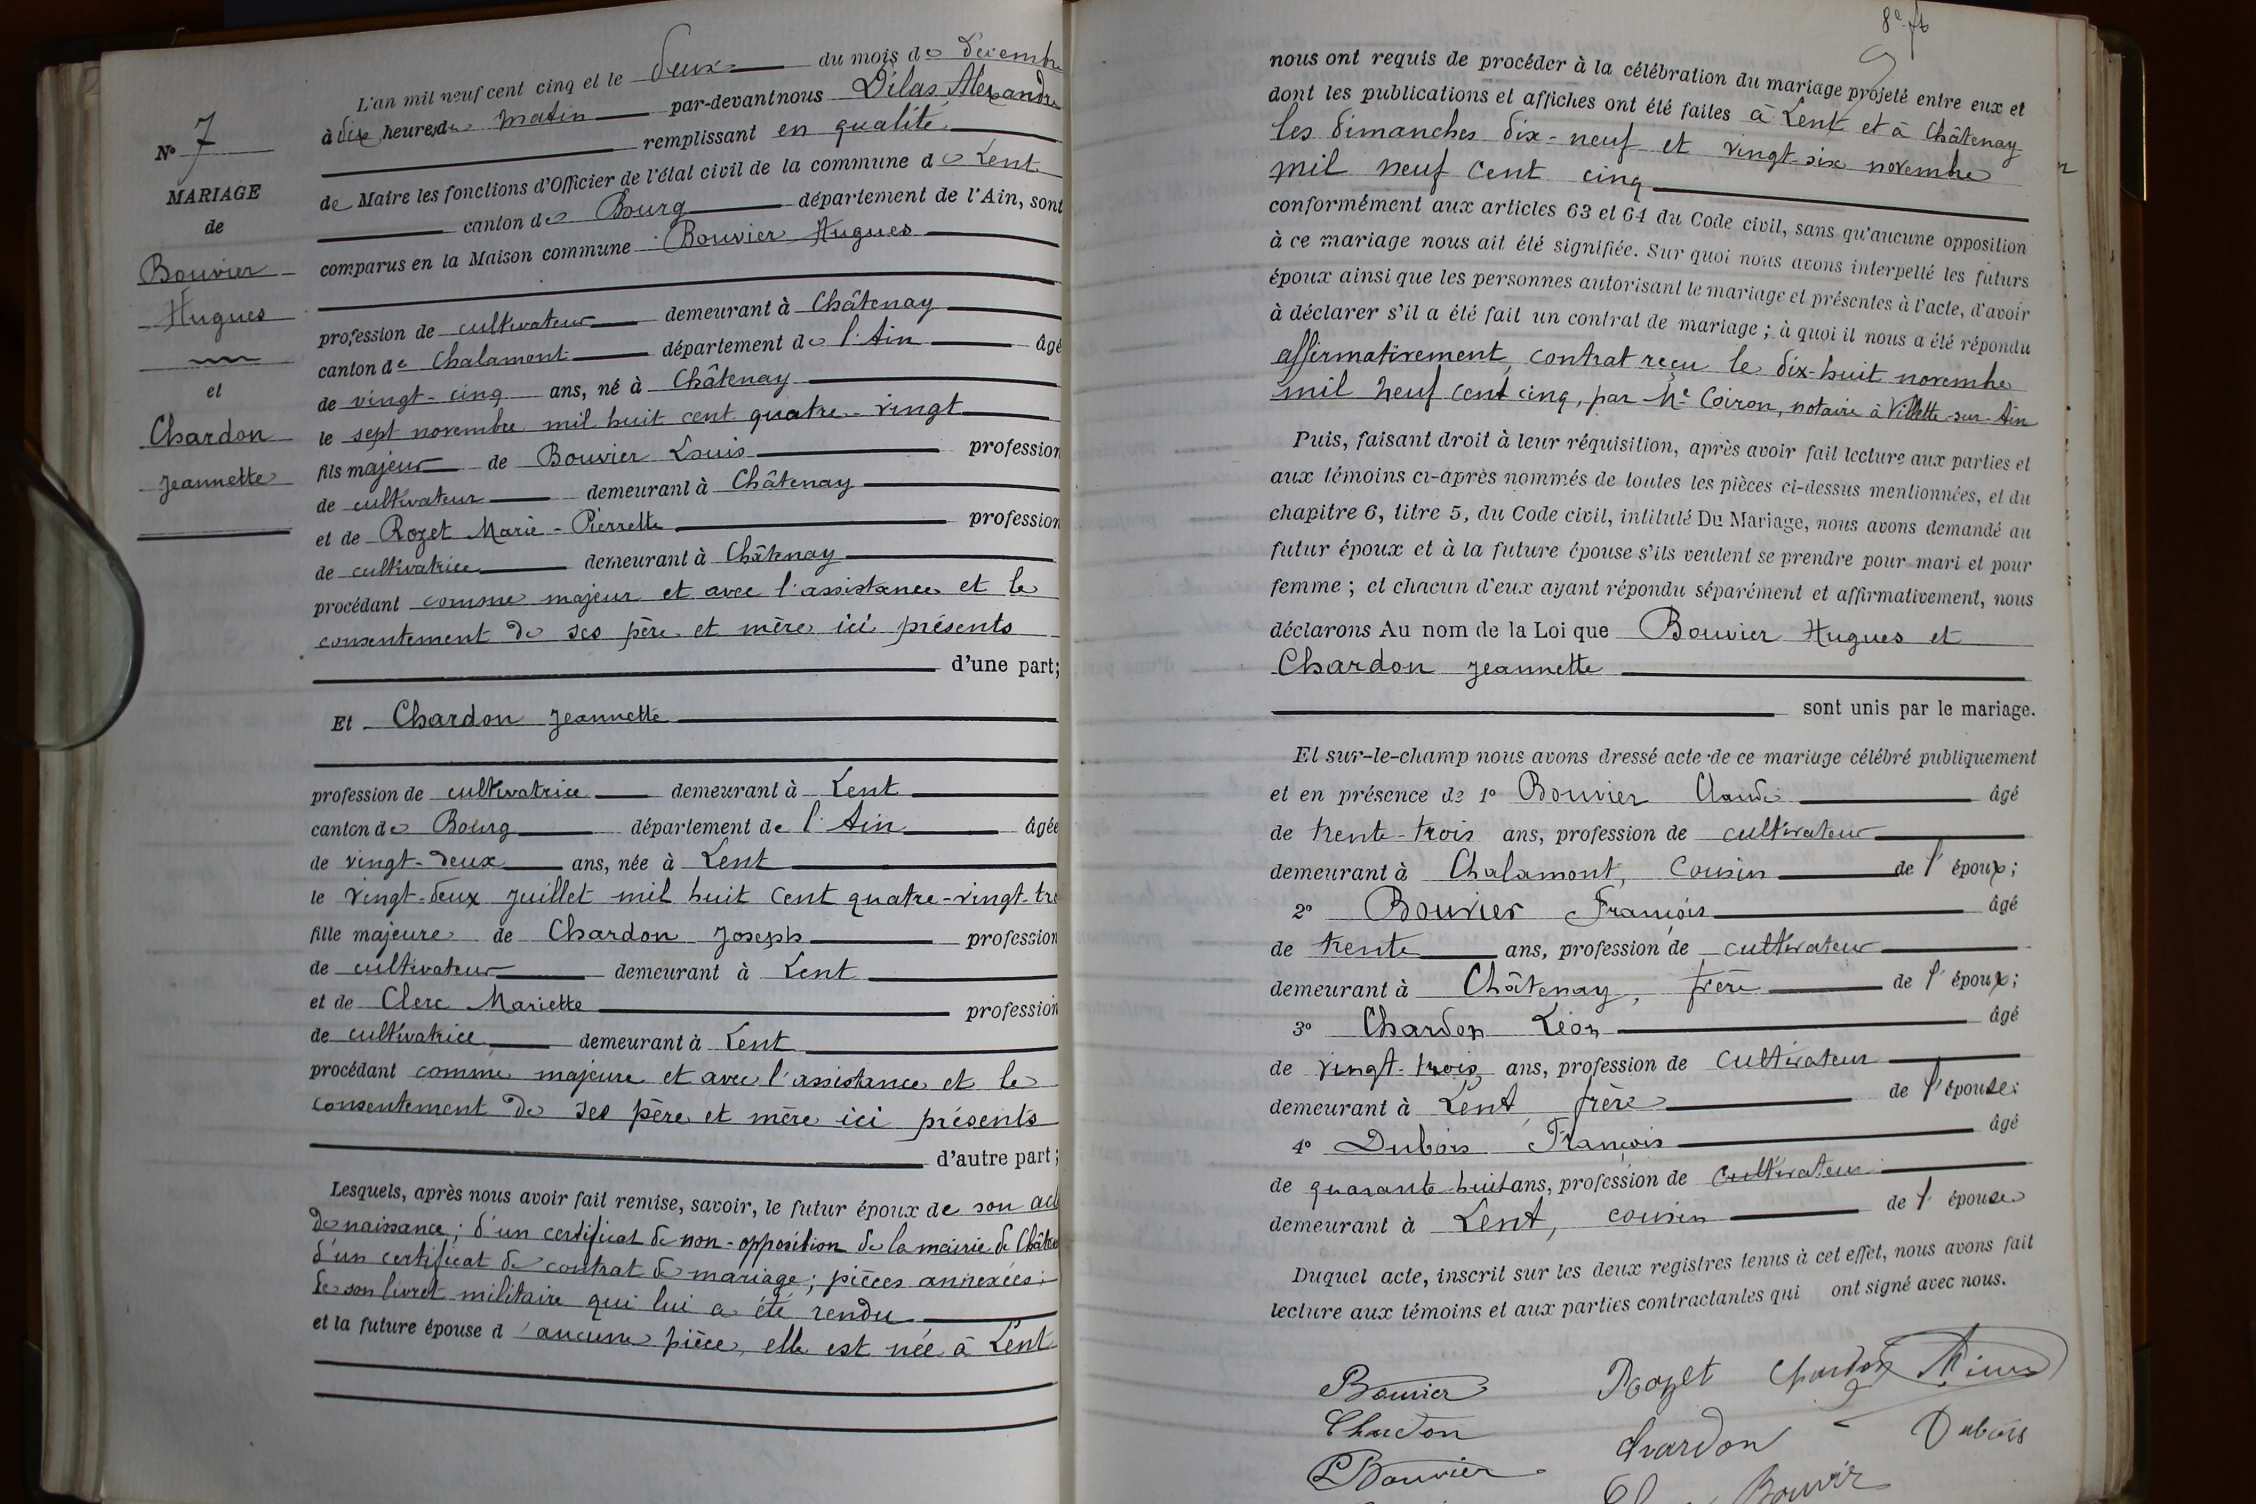 L'an mil neuf cent cinq et le deux du mois de Décembre
à dix heures du matin par-devant nous Dilas Alexandre
remplissant en qualité
de Maire les fonctions d'Officier de l'état civil de la commune de Lent
canton de Bourg département de l'Ain, sont
comparus en la Maison commune Bouvier Hugues
profession de cultivateur demeurant à Châtenay
canton de Chalamont département de l'Ain âgé
de vingt-cinq ans, né à Châtenay
le sept novembre mil huit cent quatre-vingt
fils majeur de Bouvier Louis profession
de cultivateur demeurant à Châtenay
et de Rozet Marie-Pierrette profession
de cultivatrice demeurant à Châtenay
procédant comme majeur et avec l'assistance et le
consentement de ses père et mère ici présents
d'une part;
Et Chardon Jeannette
profession de cultivatrice demeurant à Lent
canton de Bourg département de l'Ain âgée
de vingt-deux ans, née à Lent
le vingt-deux juillet mil huit cent quatre-vingt-tr
fille majeure de Chardon Joseph profession
de cultivateur demeurant à Lent
et de Clerc Mariette profession
de cultivatrice demeurant à Lent
procédant comme majeure et avec l'assistance et le
consentement de ses père et mère ici présents
d'autre part;
Lesquels, après nous avoir fait remise, savoir, le futur époux de son act
de naissance; d'un certificat de non-opposition de la mairie de Châten
d'un certificat de contrat de mariage; pièces annexées;
de son livret militaire qui lui a été rendu
et la future épouse d'aucune pièce, elle est née à Lent
N° 7
MARIAGE
de
Bouvier
Hugues
et
Chardon
Jeannette
8e ft
nous ont requis de procéder à la célébration du mariage projeté entre eux et
dont les publications et affiches ont été faites à Lent et à Châtenay
les dimanches dix-neuf et vingt-six novembre
mil neuf cent cinq
conformément aux articles 63 et 64 du Code civil, sans qu'aucune opposition
à ce mariage nous ait été signifiée. Sur quoi nous avons interpellé les futurs
époux ainsi que les personnes autorisant le mariage et présentes à l'acte, d'avoir
à déclarer s'il a été fait un contrat de mariage; à quoi il nous a été répondu
affirmativement, contrat reçu le dix-huit novembre
mil neuf cent cinq, par Me Coiron, notaire à Villette-sur-Ain
Puis, faisant droit à leur réquisition, après avoir fait lecture aux parties et
aux témoins ci-après nommés de toutes les pièces ci-dessus mentionnées, et du
chapitre 6, titre 5, du Code civil, intitulé Du Mariage, nous avons demandé au
futur époux et à la future épouse s'ils veulent se prendre pour mari et pour
femme; et chacun d'eux ayant répondu séparément et affirmativement, nous
déclarons Au nom de la Loi que Bouvier Hugues et
Chardon Jeannette
sont unis par le mariage.
Et sur-le-champ nous avons dressé acte de ce mariage célébré publiquement
et en présence de 1° Bouvier Claude âgé
de trente-trois ans, profession de cultivateur
demeurant à Chalamont, cousin de l'époux;
2° Bouvier François âgé
de trente ans, profession de cultivateur
demeurant à Châtenay, frère de l'époux;
3° Chardon Léon âgé
de vingt-trois ans, profession de cultivateur
demeurant à Lent frère de l'épouse;
4° Dubois François âgé
de quarante-huit ans, profession de cultivateur
demeurant à Lent, cousin de l'épouse
Duquel acte, inscrit sur les deux registres tenus à cet effet, nous avons fait
lecture aux témoins et aux parties contractantes qui ont signé avec nous.
Bouvier Rozet Chardon
Chardon Chardon Dubois
L Bouvier Bouvier